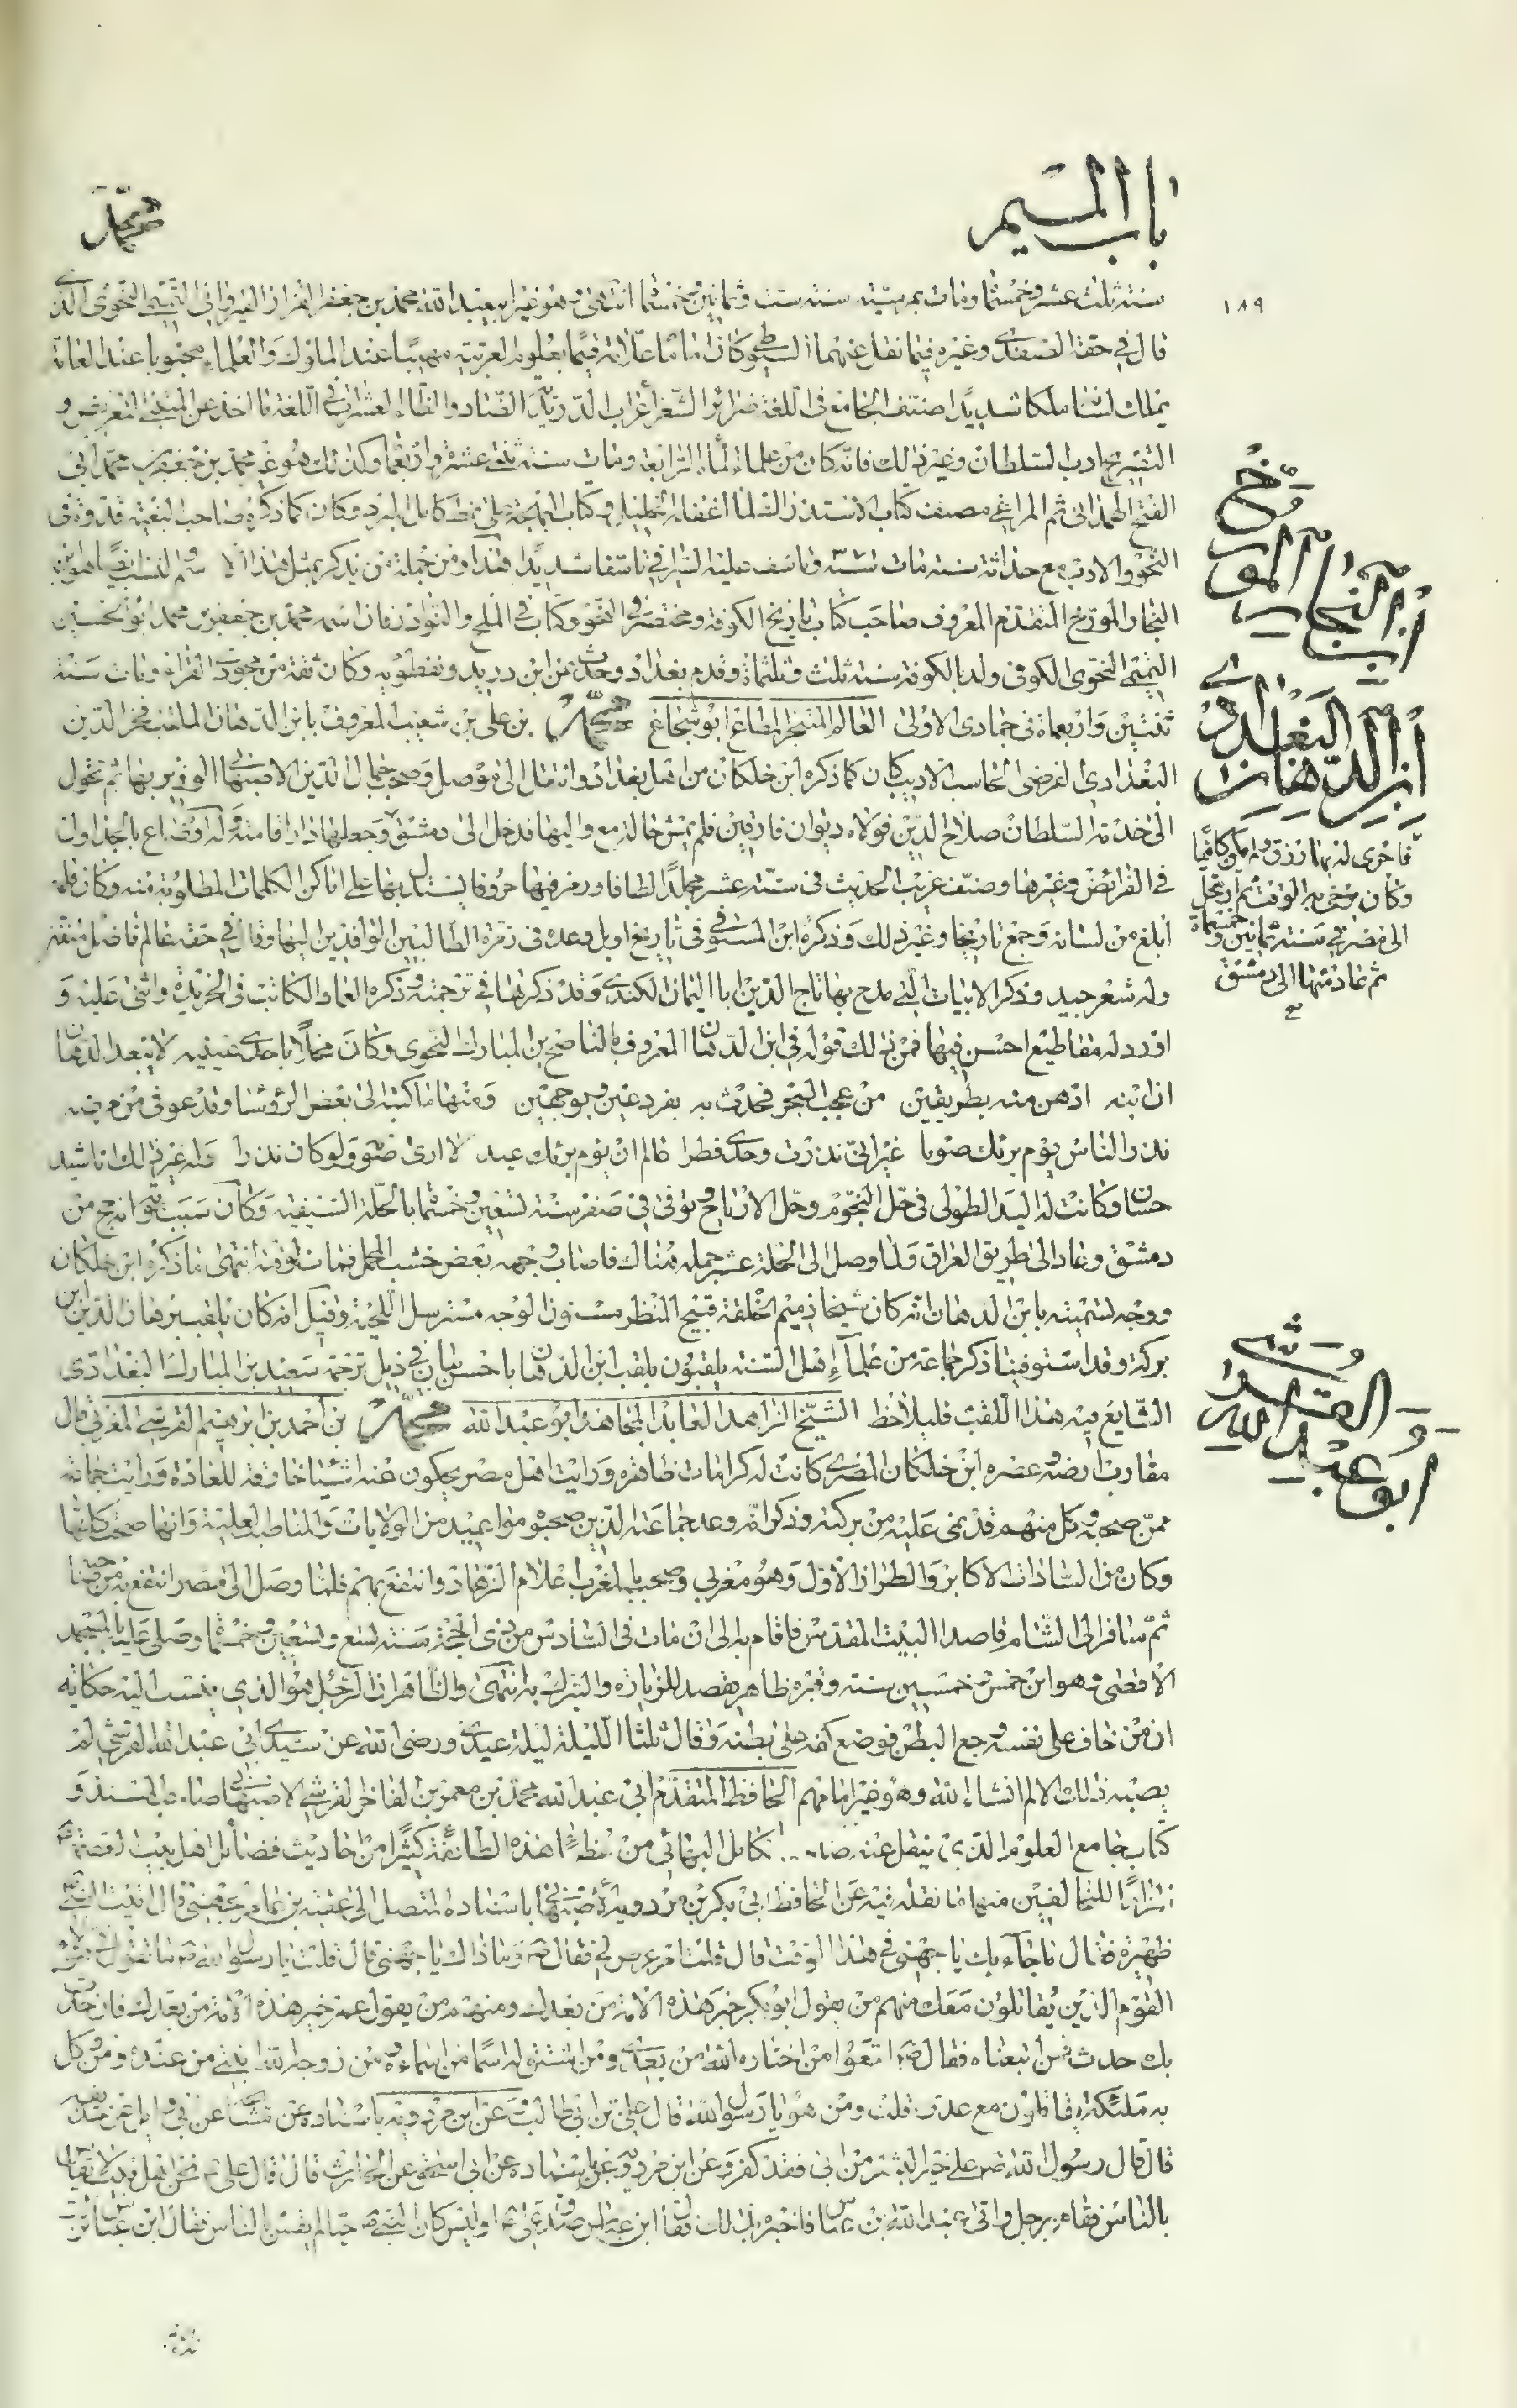 باب الميم
محمّد
١٨٩
سنة ثلث عشر وخمسمأ ومات بمرسيّة سنة ست وثمانين وخمسمأ انتهى وهو غير ابيعبد الله محمد بن جعفر القزاز القيرواني التميمي النحوي الذي
قال في حقه الصفدي وغيره فيما نقل عنهما السيوطي وكان اماما علّامة قيّما بعلوم العربية مهيبا عند الملوك والعلماء محبوبا عند العامة
يملك لسانه ملكا شديدا صنّف الجامع في اللغة ضرائر الشعر اعراب الدريدية الضاد والظاء العشرات في اللغة ما اخذ على المتنبي التعريض و
التصريح ادب السلطان وغير ذلك فانّه كان من علماء المأة الرابعة ومات سنة ثنتى عشرة واربعمأ وكذلك هو غير محمد بن جعفر بن محمد ابي
الفتح الهمداني ثم المراغي مصنف كتاب الاستدراك لما اغفله الخليل وكتاب البهجة على نمط كامل المبرد وكان كما ذكره صاحب البغية قدوة في
النحو والادب مع حداثة سنه مات سنة ٣٧١ وتاسف عليه السيرافي تاسفا شديدا هذا ومن جملة من يذكر بمثل هذا الاسم والنسب ايضا هو ابن
النجار المورّخ المتقدم المعروف صاحب كتاب تاريخ الكوفة ومختصر في النحو وكتاب في الملح والنوادر فان اسمه محمد بن جعفر بن محمد ابو الحسين
التميمي النحوي الكوفي ولد بالكوفة سنة ثلث وثلثمأة وقدم بغداد وحدث عن ابن دريد ونفطويه وكان ثقة من مجودي القراة ومات سنة
ثنتين واربعمأة في جمادى الاولى العالم المتبحر المطاع ابو شجاع محمّد بن علي بن شعيب المعروف بابن الدهان الملقب فخر الدين
البغدادي الفرضي الحاسب الاديب كان كما ذكره ابن خلكان من اهل بغداد وانتقل الى موصل وصحب جمال الدين الاصبهاني الوزير بها ثم تحول
الى خدمة السلطان صلاح الدين فولاه ديوان ميافارقين فلم يمش حاله مع واليها فدخل الى دمشق وجعلها دارا قامته وله اوضاع بالجداول
في الفرائض وغيرها وصنف غريب الحديث في ستة عشر مجلدا لطافا ورمز فيها حروفا يستدل بها على اماكن الكلمات المطلوبة منه وكان قلمه
ابلغ من لسانه وجمع تاريخا وغير ذلك وذكره ابن المستوفي في تاريخ اربل وعده في زمرة الطالبين الوافدين اليها وقال في حقه عالم فاضل متقن
وله شعر جيد وذكر الابيات التي مدح بها تاج الدين ابا اليمان الكندي وقد ذكرتها في ترجمته وذكره العماد الكاتب في الخريدة واثنى عليه و
اورد له مقاطيع احسن فيها فمن ذلك قوله في ابن الدهان المعروف بالناصح بن المبارك النحوي وكان مخلّا باحدى عينيه لا يبعد الدهان
ان ابنه ادهن منه بطريقين من عجب البحر فحدث به بفرد عين وبوجهين ومنها ما كتبه الى بعض الرؤسا وقد عوفي من مرضه
نذر الناس يوم برئك صوما غير اني نذرت وحدي فطرا عالم ان يوم برئك عيد لا ارى صومه ولو كان نذرا وله غير ذلك اناشيد
حسان وكانت له اليد الطولى في حل النجوم وحل الازياج وتوفي في صفر سنة تسعين وخمسمأ بالحلة السيفية وكان سبب موته انه حج من
دمشق وعاد الى طريق العراق ولما وصل الى الحلة عثر جمله هناك فاصاب وجهه بعض خشب المحمل فمات لوقته انتهى ما ذكره ابن خلكان
ووجه تسميته بابن الدهان انه كان شيخا ذميم الخلقة قبيح المنظر مسنون الوجه مسترسل اللحية وقيل انه كان يلقب ببرهان الدين ابن
بركة وقد استوفينا ذكر جماعة من علماء اهل السنة يلقبون بلقب ابن الدهان باحسن بيان في ذيل ترجمة سعيد بن المبارك البغدادي
الشايع فيه هذا اللقب فليلاحظ الشيخ الزاهد العابد المجاهد ابو عبد الله محمّد بن احمد بن ابراهيم القرشي المغربي قال
ممن صحبه وكل منهم قد نمى عليه من بركته وذكر انه وعد جماعة الذين صحبوه مواعيد من الولايات والمناصب العلية وانها صحت كلها
وكان من السادات الاكابر والطراز الاول وهو مغربي وصحب بالمغرب اعلام الزهاد وانتفع بهم فلما وصل الى مصر انتفع به من صحبه
ثم سافر الى الشام قاصدا البيت المقدس فاقام به الى ان مات في السادس من ذي الحجة سنة تسع وتسعين وخمسمأ وصلي عليه بالمسجد
الاقصى وهو ابن خمس وخمسين سنة وقبره ظاهر يقصد للزيارة والتبرك به انتهى والظاهر ان الرجل هو الذي ينسب اليه حكاية
ان من خاف على نفسه وجع البطن فوضع كفه على بطنه وقال ثلثا الليلة ليلة عيدي ورضي الله عن سيدي ابي عبد الله القرشي لم
يصبه ذلك الالم انشاء الله وهو غير امامهم الحافظ المتقدم ابي عبد الله محمد بن معمر بن الفاخر القرشي الاصبهاني صاحب المسند و
كتاب جامع العلوم الذي ينقل عنه صاحب كامل البهائي من عظماء هذه الطائفة كثيرا من احاديث فضائل اهل البيت
للمخالفين منها ما نقله فيه عن الحافظ ابي بكر بن مردويه باسناده المتصل الى عقبة بن عامر الجهني قال اتيت النبي
ظهيرة فقال ما جاء بك يا جهني في هذا الوقت قال قلت امر عرض لي فقال وما ذاك يا جهني قال قلت يا رسول الله ما تقول
القوم الذين يقاتلون معك منهم من يقول ابو بكر خير هذه الامة من بعدك ومنهم من يقول عمر خير هذه الامة من بعدك فان حدث
بك حدث فمن اتبعناه فقال اتبعوا من اختاره الله من بعدي ومن اشتق له اسما من اسمائه ومن زوجه الله ابنتي من عنده ومن وكل
به ملئكته يقاتلون مع عدوه قلت ومن هو يا رسول الله قال علي بن ابي طالب وعن ابن مردويه باسناده عن عن ابي وائل عن
قال قال رسول الله علي خير البشر من ابى فقد كفر وعن ابن مردويه باسناده عن ابي اسحق عن الحارث قال قال علي نحن اهل بيت لا نقاس
بالناس فقام رجل واتى عبد الله بن عباس فاخبره بذلك فقال ابن عباس صدق علي اوليس كان النبي لا يقاس بالناس فقال ابن عباس
ابن النجار المورخ
ابن الدهان البغدادي
فاجرى له بها رزق ولم يكن كافيا
وكان يزجي به الوقت ثم ارتحل
الى مصر في سنة ثمانين وخمسمأة
ثم عاد منها الى دمشق
ابو عبد الله القرشي